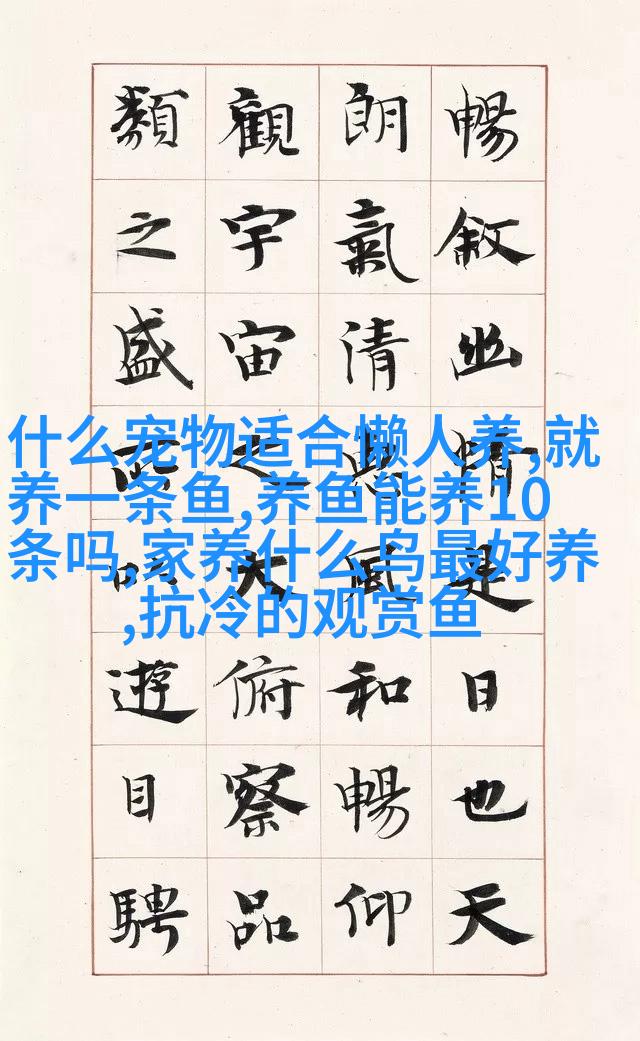 暢敘幽情是日也天
朗氣清惠風和暢仰
觀宇宙之大俯察品
類之盛所以遊目騁
什么宠物适合懒人养,就
养一条鱼,养鱼能养10
条吗,家养什么鸟最好养
,抗冷的观赏鱼